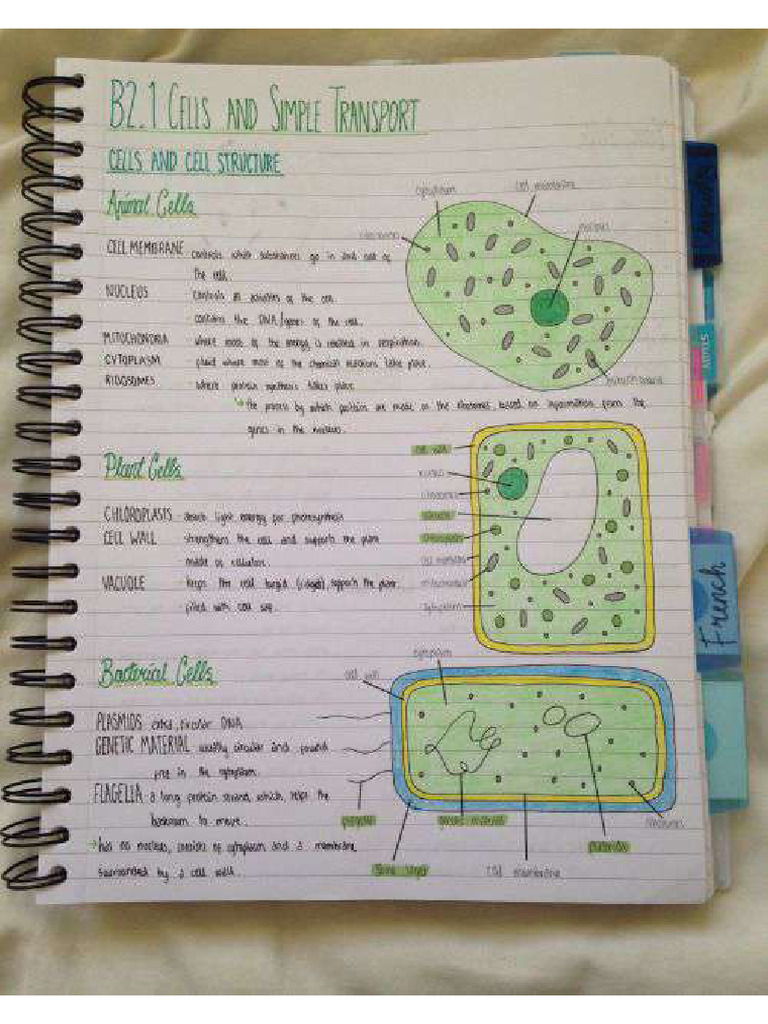 B2.1 CELLS AND SIMPLE TRANSPORT
CELLS AND CELL STRUCTURE
Animal Cells
CELL MEMBRANE controls what substances go in and out of
the cell.
NUCLEUS controls all activities of the cell.
contains the DNA/genes of the cell.
MITOCHONDRIA where most of the energy is released in respiration.
CYTOPLASM fluid where most of the chemical reactions take place.
RIBOSOMES where protein synthesis takes place
the process by which proteins are made on the ribosomes, based on information from the
genes in the nucleus.
cytoplasm
cell membrane
ribosomes
nucleus
mitochondria
Plant Cells
CHLOROPLASTS absorb light energy for photosynthesis
CELL WALL strengthens the cell and supports the plant
made of cellulose.
VACUOLE keeps the cell turgid (rigid), supports the plant
filled with cell sap.
cell wall
nucleus
ribosomes
vacuole
chloroplasts
cell membrane
mitochondria
cytoplasm
Bacterial Cells
PLASMIDS circular DNA
GENETIC MATERIAL usually circular and found
free in the cytoplasm.
FLAGELLA a long protein strand, which helps the
bacterium to move.
has no nucleus, consists of cytoplasm and a membrane
surrounded by a cell wall.
cytoplasm
cell wall
flagella
genetic material
ribosomes
plasmids
slime layer
cell membrane
French